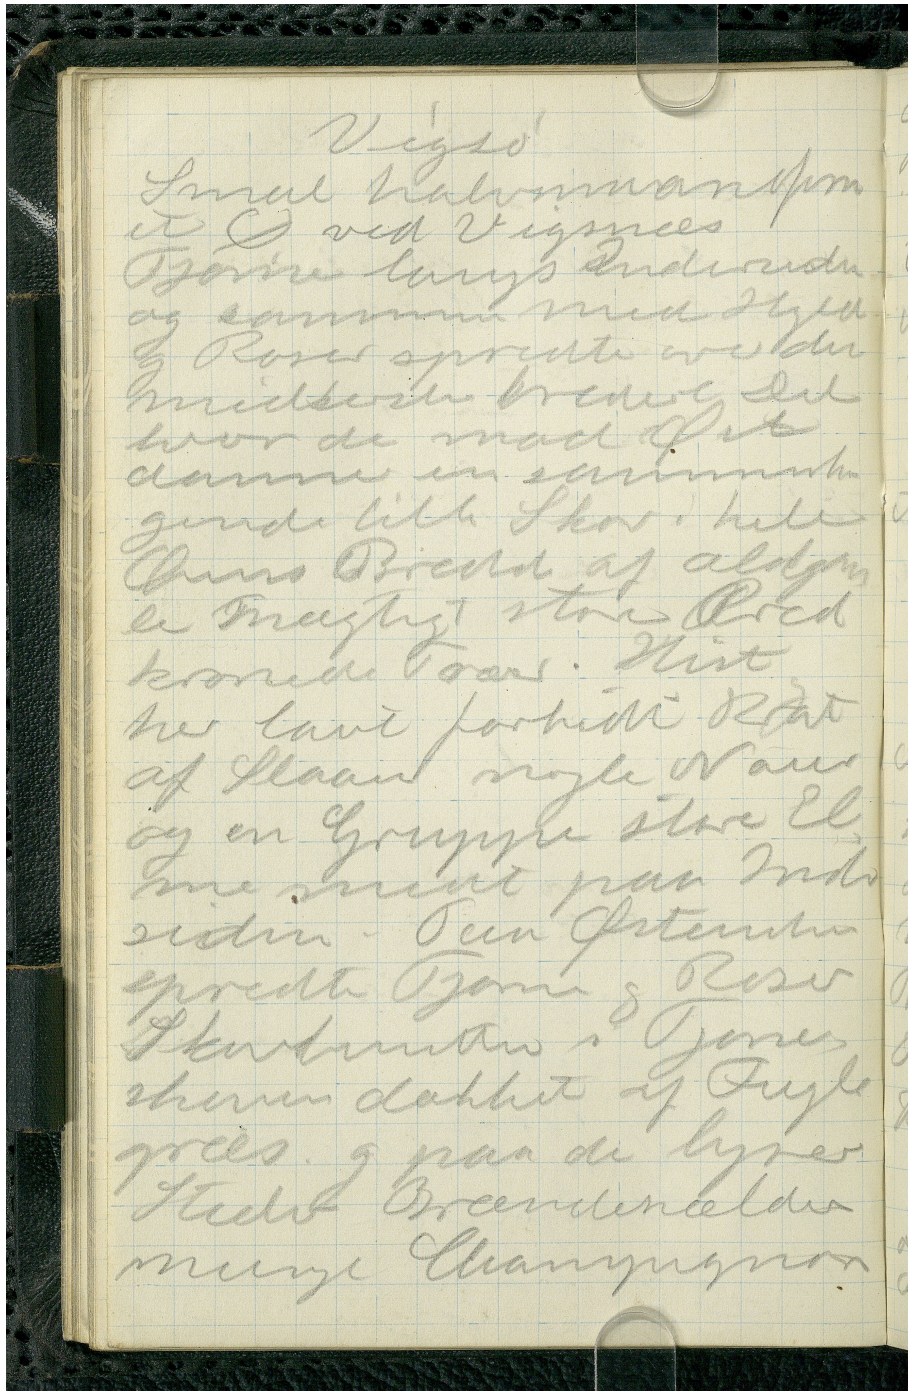 Vigsø
Smal halvmaaneform
et Ø ved Vigsnæs
Tjørne langs Indersiden
og sammen med Hyld
og Roser spredte over den
midterste bredere Del
hvor de mod Øst
danne en sammenhæn
gende lille Skov i hele
Øens Bredde af ældgam
le mægtigt store bred
kronede Træer. Hist
her lavt forbidt Krat
af Slaaen nogle Naur
og en Gruppe store El
me midt paa Inder
siden. Paa Østenden
spredte Tjørne og Roser
Skovbunden i Tjørne
skoven dækket af Fugle
græs. og paa de lysner
Steder Brændenælder
mange Champignon